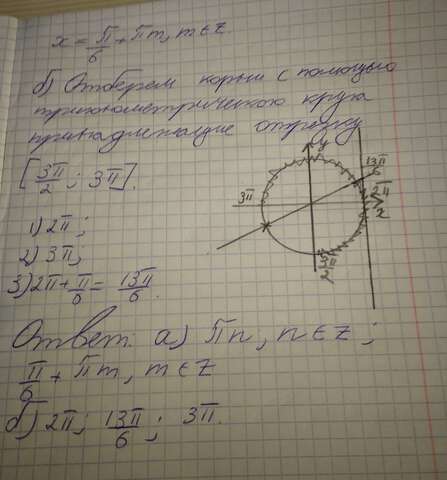 x = π/6 + πm, m ∈ z.
б) Отберем корни с помощью
тригонометрического круга
принадлежащие отрезку
[3π/2 ; 3π].
y
13π/6
3π
2π
x
3π/2
1) 2π ;
2) 3π ;
3) 2π + π/6 = 13π/6.
Ответ: а) πn, n ∈ z ;
π/6 + πm, m ∈ z
б) 2π ; 13π/6 ; 3π.